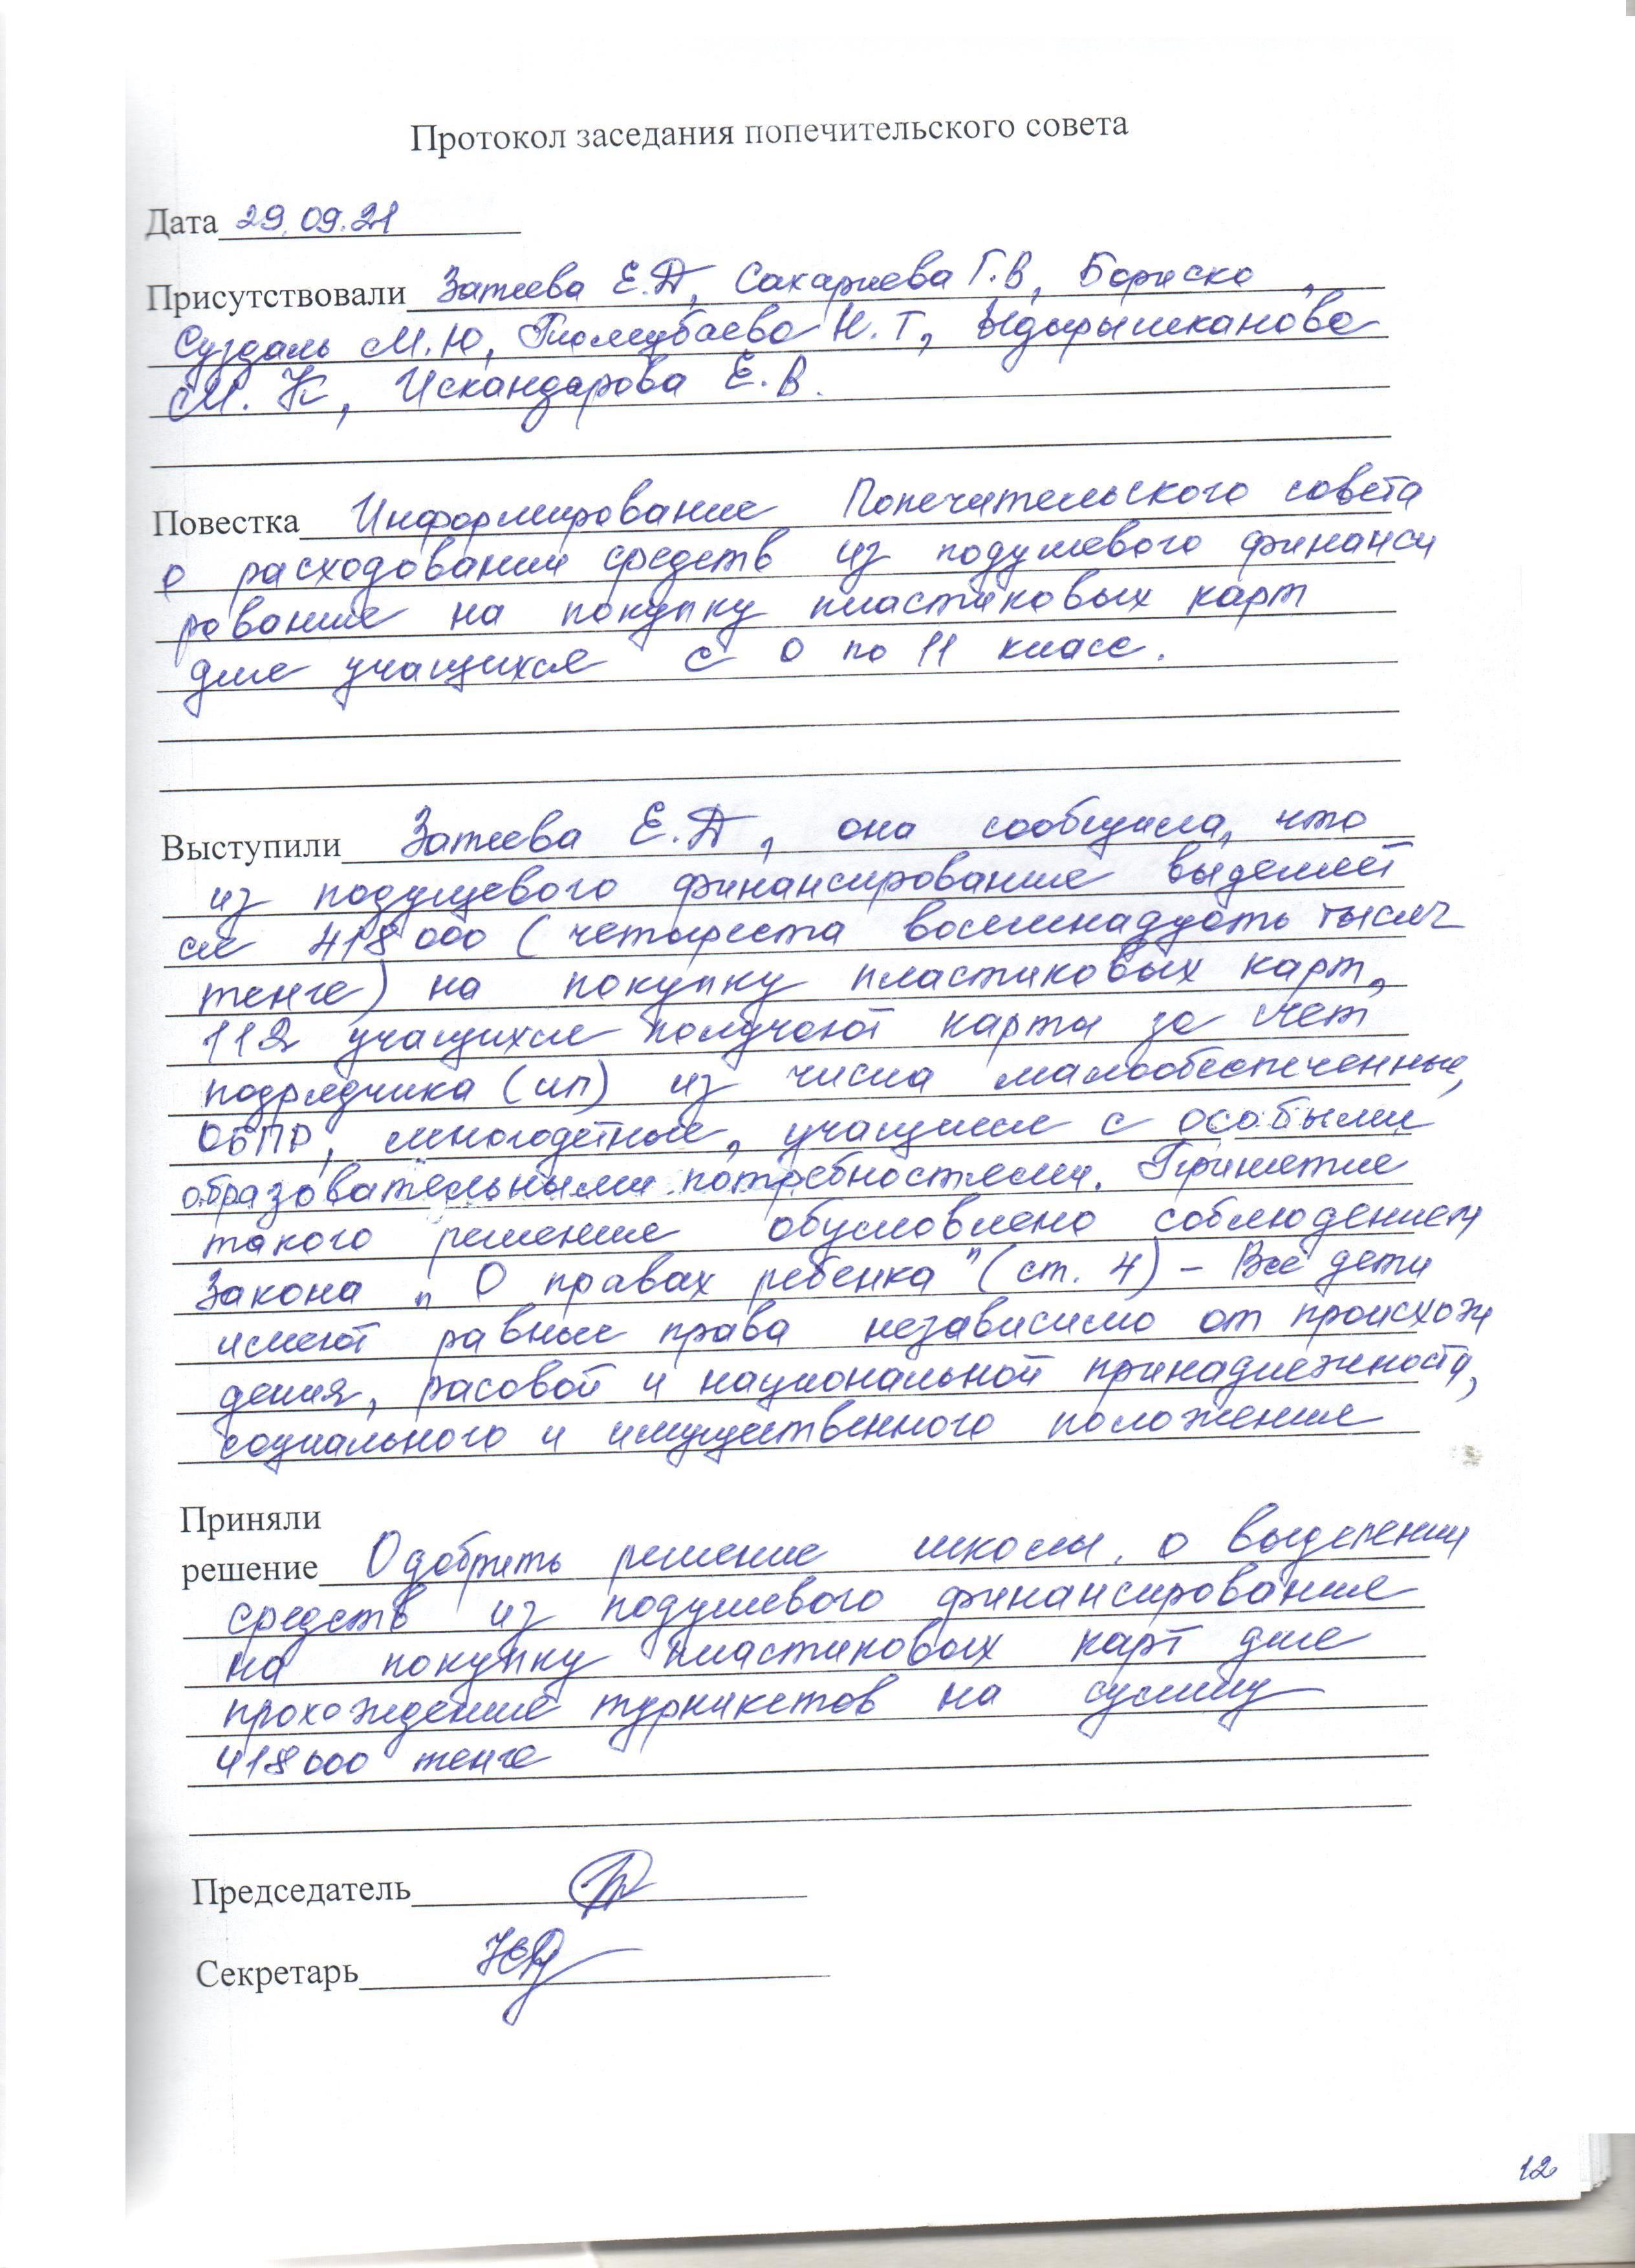 Протокол заседания попечительского совета
Дата 29.09.21
Присутствовали Затеева Е.Д, Сахариева Г.В, Бориско ,
Суздаль М.Ю, Тюлюбаева Н.Т, Ыдырышканова
М. К, Искандарова Е.В.
Повестка Информирование Попечительского совета
о расходовании средств из подушевого финанси
рование на покупку пластиковых карт
для учащихся с 0 по 11 класс.
Выступили Затеева Е.Д, она сообщила, что
из подушевого финансирование выделяет
ся 418 000 (четыреста восемнадцать тысяч
тенге) на покупку пластиковых карт,
112 учащихся получают карты за счет
подрядчика (ип) из числа малообеспеченные,
ОБПР, многодетные, учащиеся с особыми
образовательными потребностями. Принятие
такого решение обусловлено соблюдением
Закона „О правах ребенка" (ст. 4) – Все дети
имеют равные права независимо от происхож
дения, расовой и национальной принадлежности,
социального и имущественного положение
Приняли
решение Одобрить решение школы о выделении
средств из подушевого финансирование
на покупку пластиковых карт для
прохождение турникетов на сумму
418000 тенге
Председатель
Секретарь
12